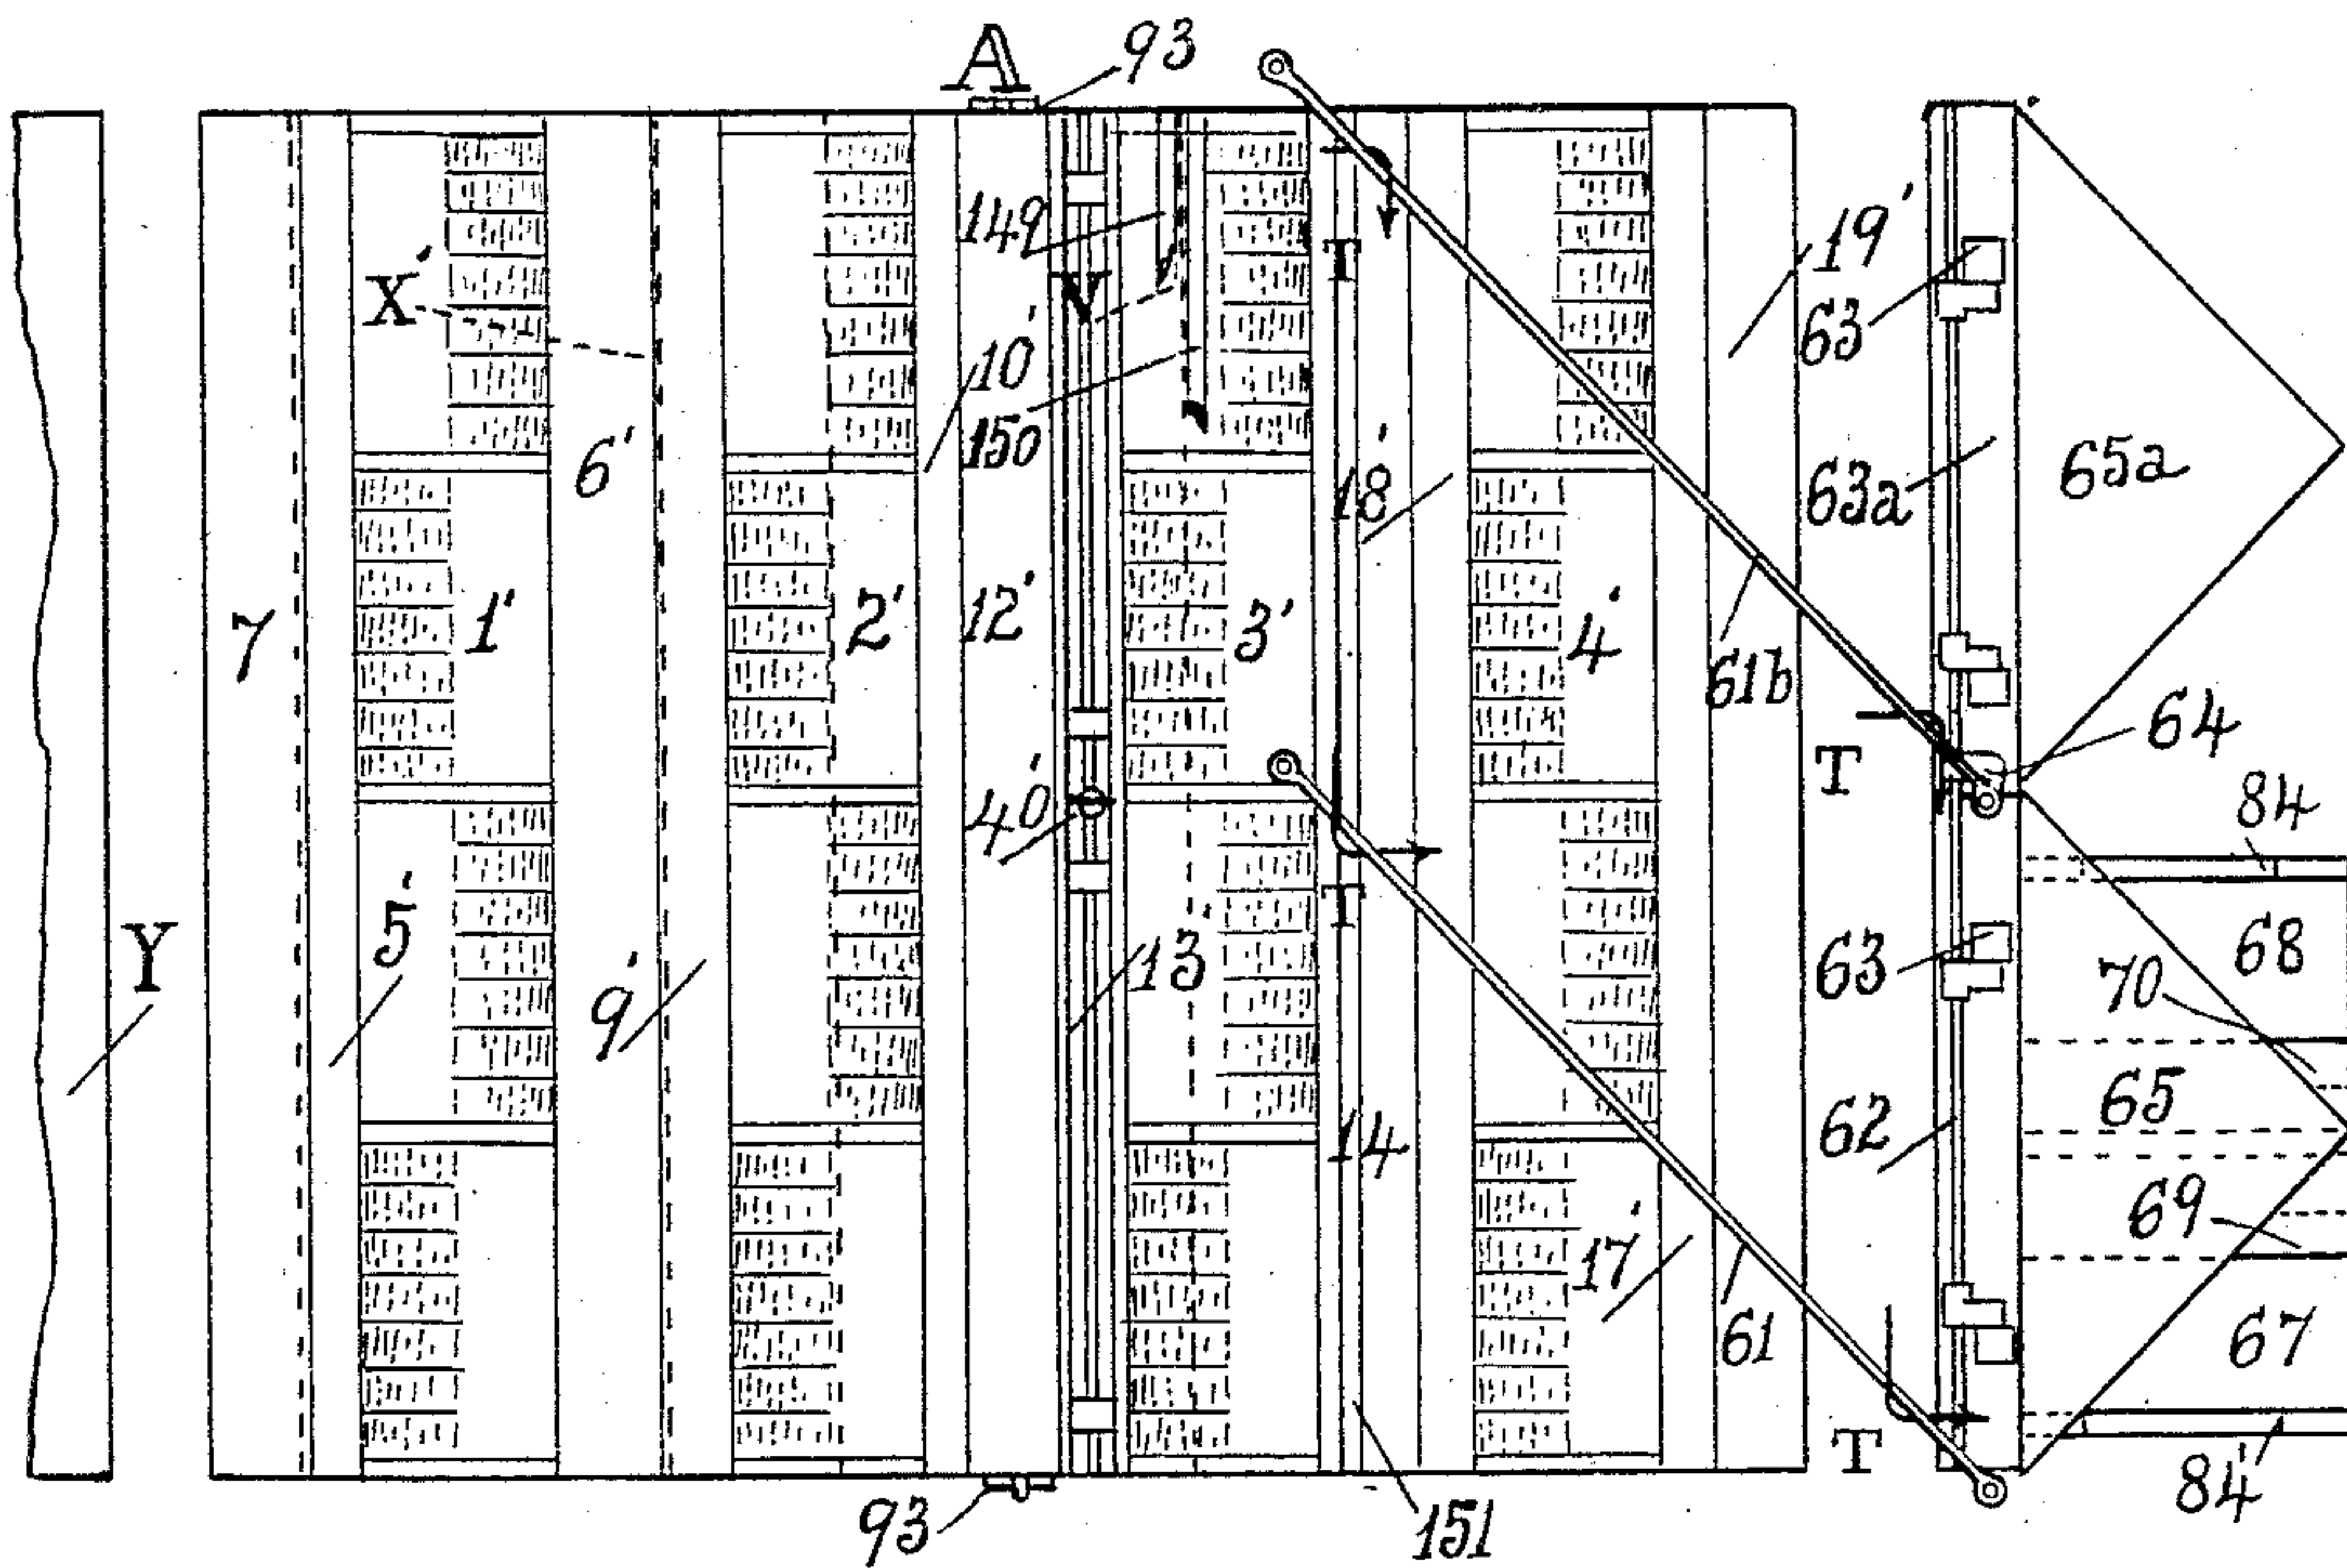 A
93
149
X'
V
T
19'
63
10'
150
6'
18'
63a
65a
7
1'
2'
12'
3'
4'
61b
64
T
40'
84
5'
T
63
68
Y
9'
13'
70
65
62
14
69
17'
61
67
T
84'
93
151